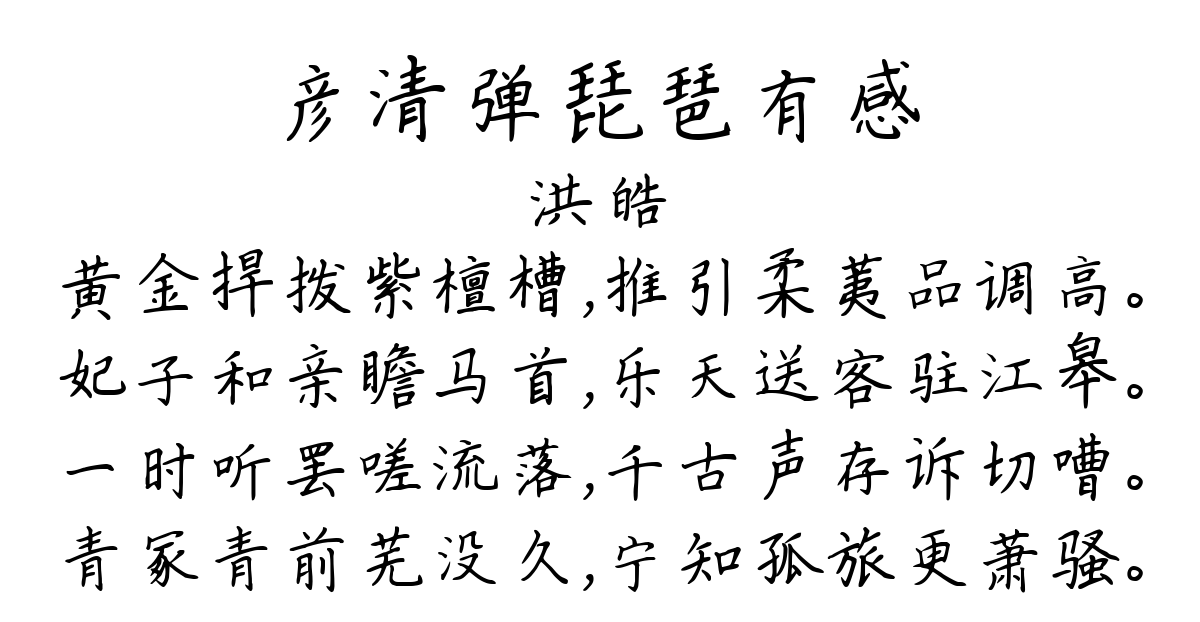 彦清弹琵琶有感
洪皓
黄金捍拨紫檀槽,推引柔荑品调高。
妃子和亲瞻马首,乐天送客驻江皋。
一时听罢嗟流落,千古声存诉切嘈。
青冢青前芜没久,宁知孤旅更萧骚。